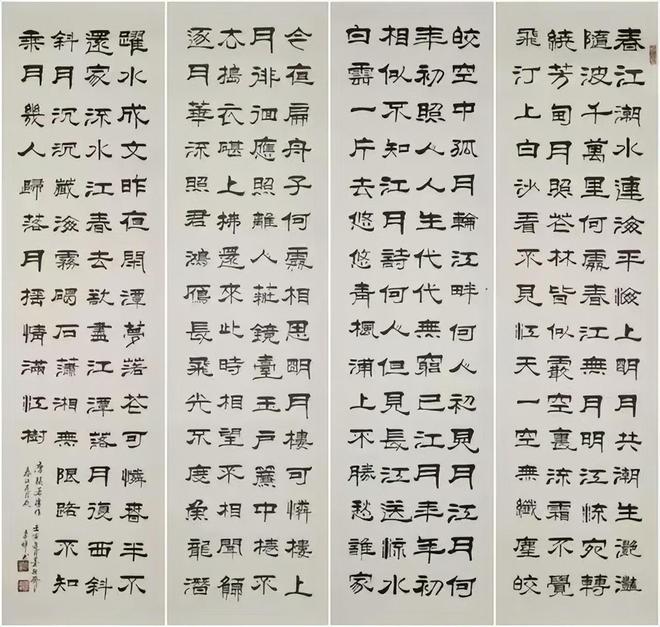 春江潮水連海平海上明月共潮生灩灩
隨波千萬里何處春江無月明江流宛轉
繞芳甸月照花林皆似霰空裏流霜不覺
飛汀上白沙看不見江天一空無纖塵皎
皎空中孤月輪江畔何人初見月江月何
年初照人人生代代無窮已江月年年初
相似不知江月詩何人但見長江送流水
白雲一片去悠悠青楓浦上不勝愁誰家
今夜扁舟子何處相思明月樓可憐樓上
月徘徊應照離人妝鏡臺玉戶簾中捲不
去搗衣砧上拂還來此時相望不相聞願
逐月華流照君鴻雁長飛光不度魚龍潛
躍水成文昨夜閑潭夢落花可憐春半不
還家流水江春去欲盡江潭落月復西斜
斜月沉沉藏海霧碣石瀟湘無限路不知
乘月幾人歸落月搖情滿江樹
唐張若虛作
春江花月夜
壬寅